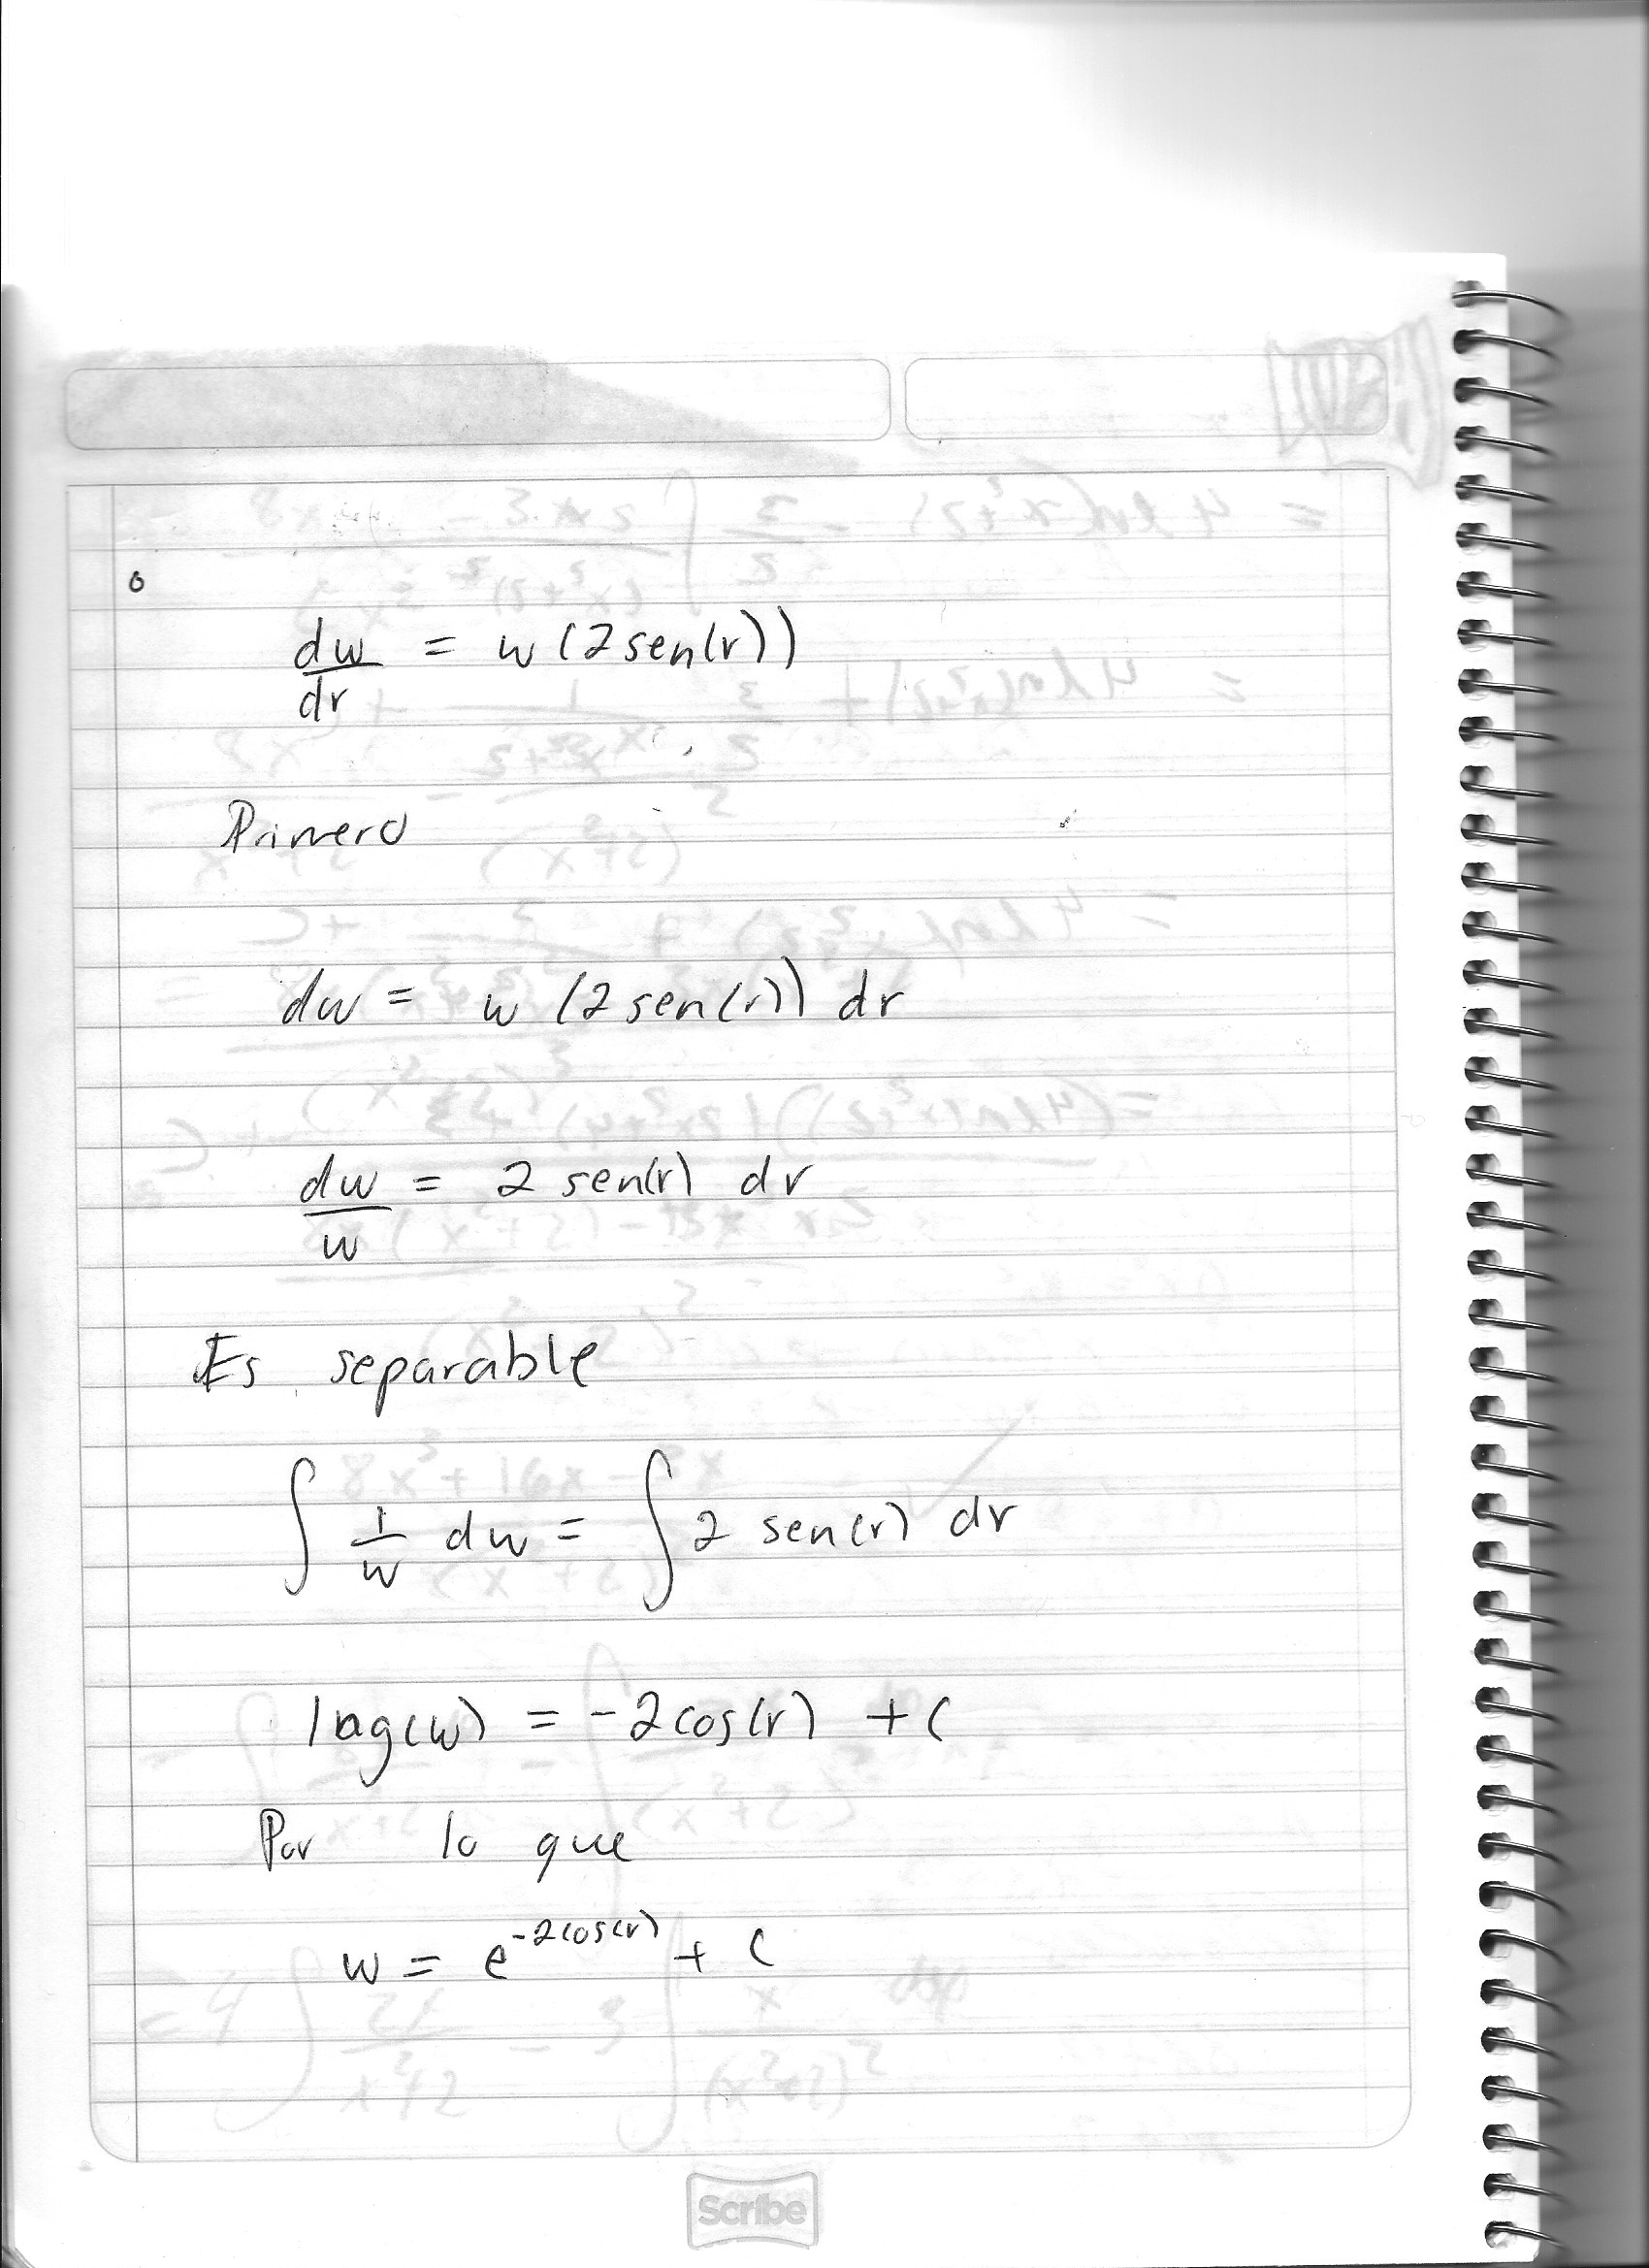 dw/dr = w (2 sen(r))
Primero
dw = w (2 sen(r)) dr
dw/w = 2 sen(r) dr
Es separable
∫ 1/w dw = ∫ 2 sen(r) dr
log(w) = -2cos(r) + C
Por lo que
w = e^{-2cos(r)} + C
Scribe